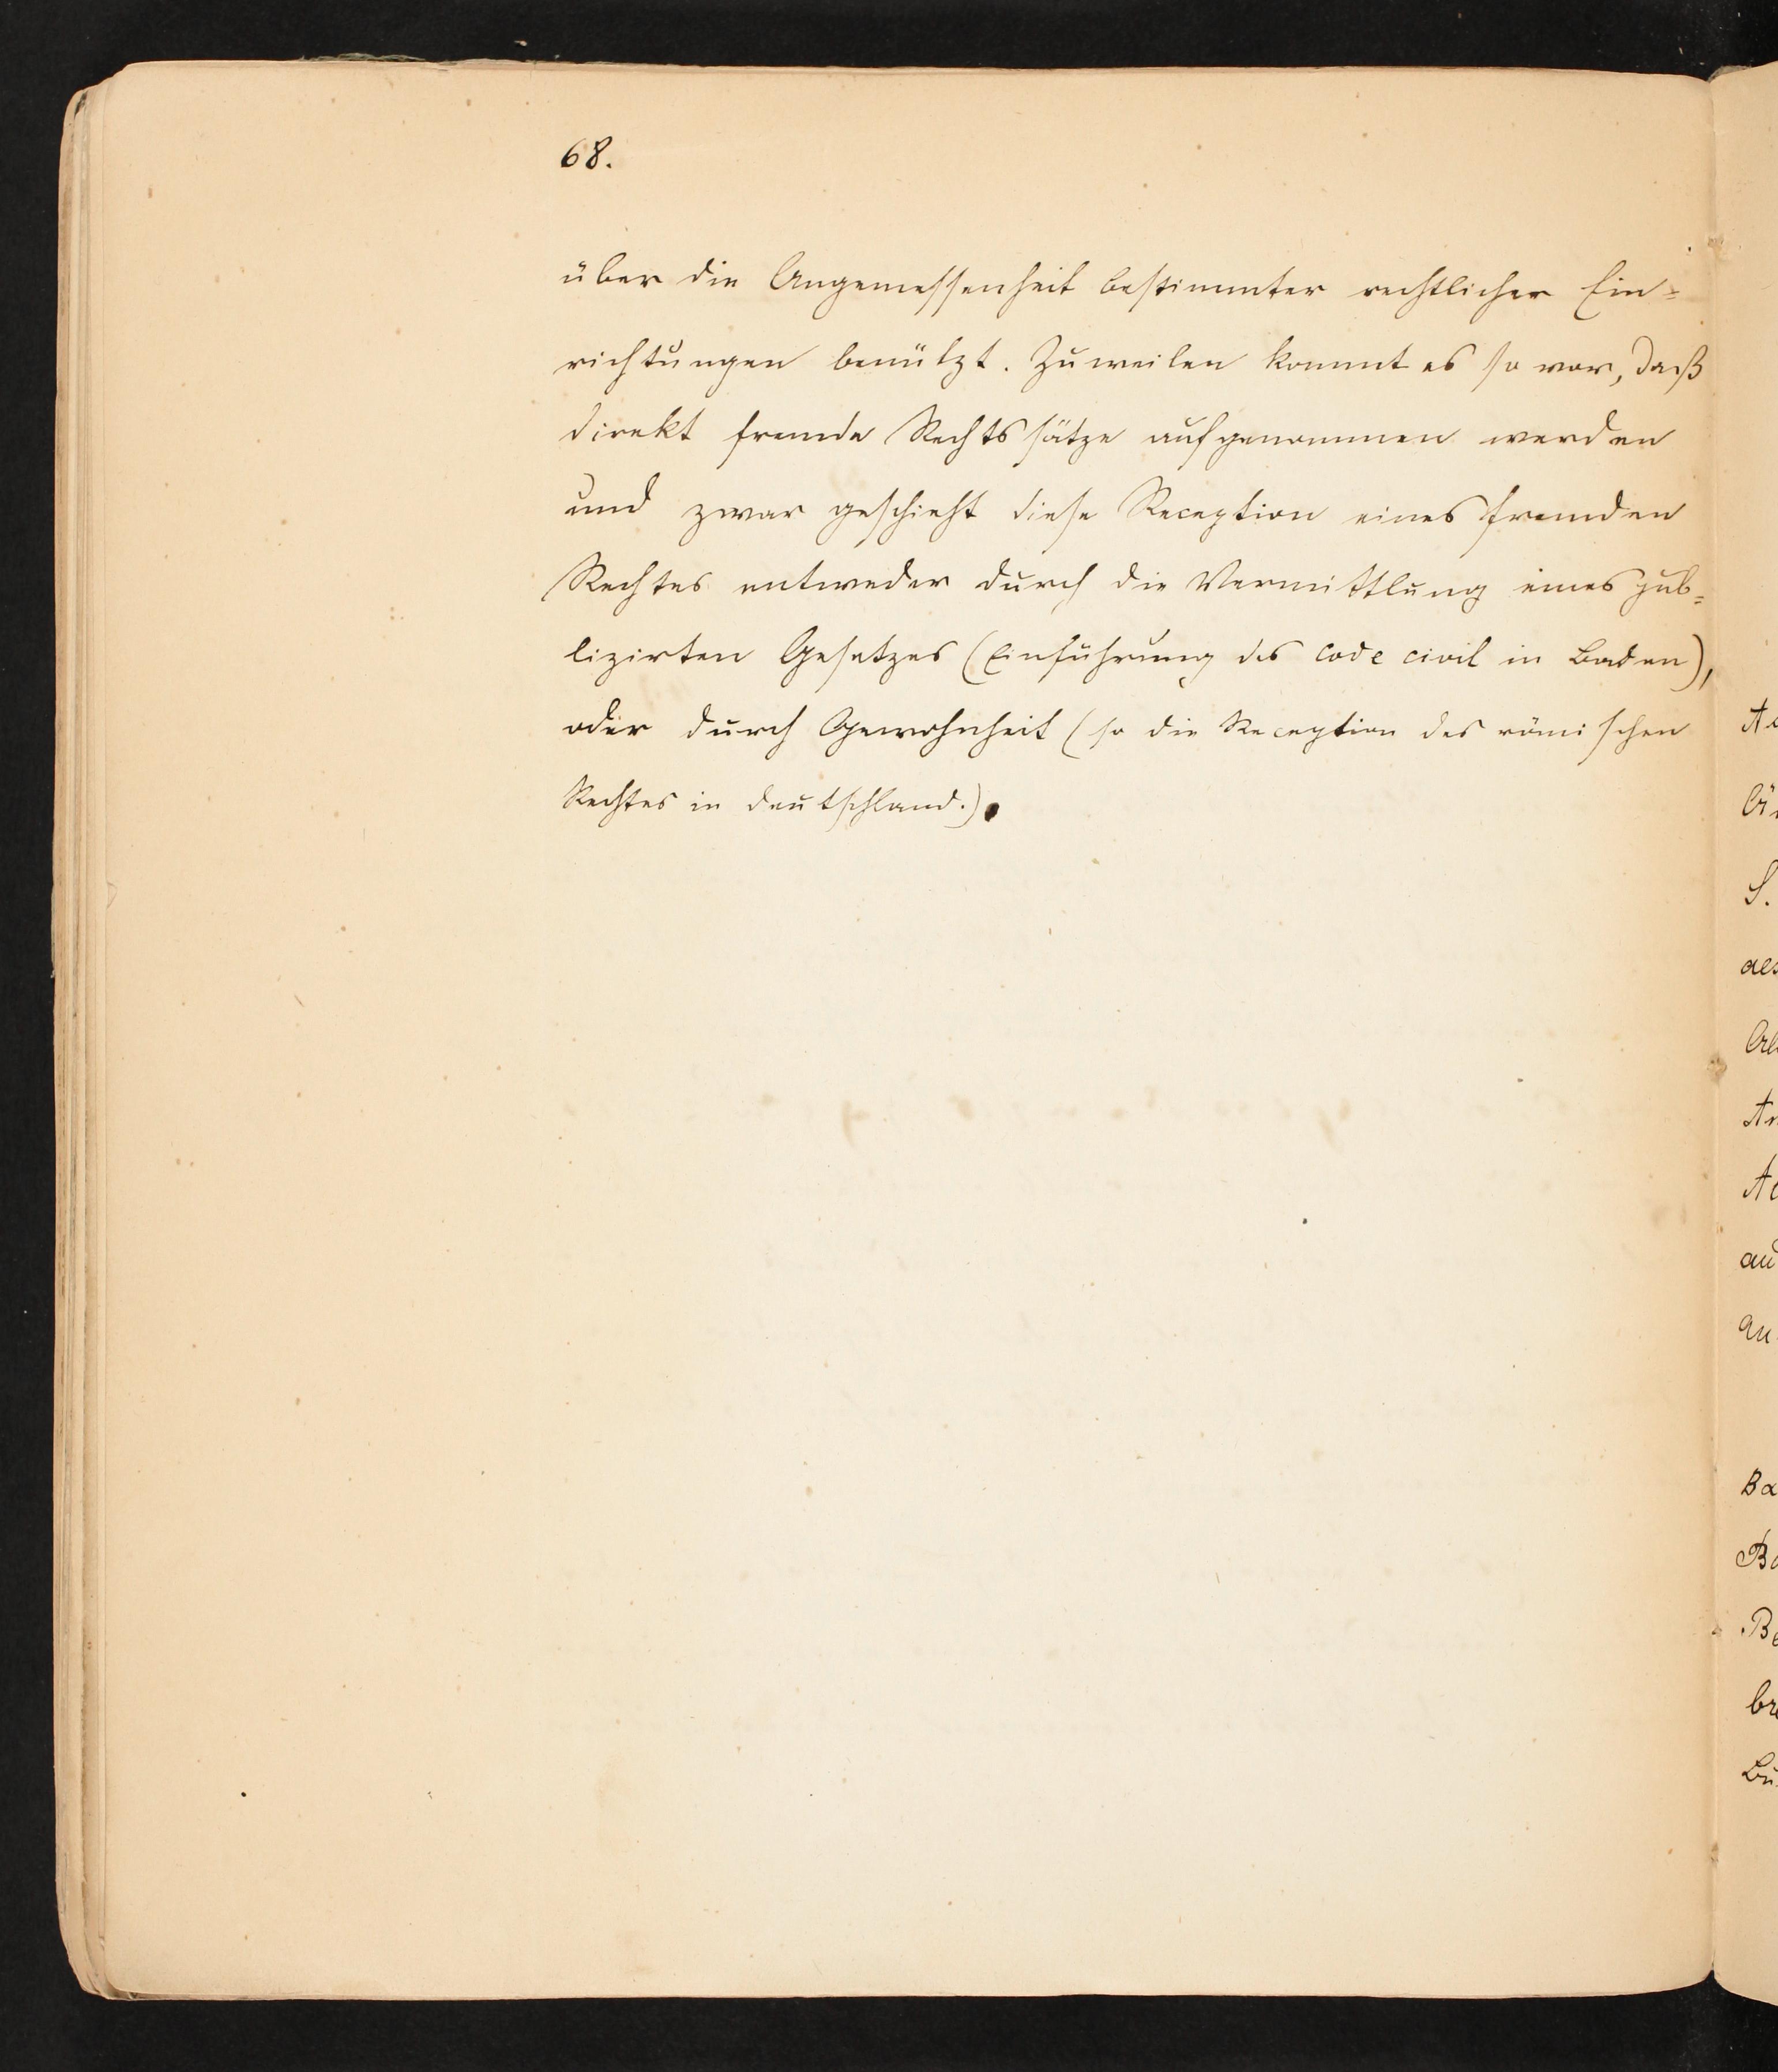 68.
über die Angemessenheit bestimmter rechtlicher Ein=
richtungen benützt. Zuweilen kommt es so vor, daß
direkt fremde Rechtssätze aufgenommen werden
und zwar geschieht diese Reception eines fremden
Rechtes entweder durch die Vermittlung eines pub=
lizirten Gesetzes (Einführung des Code civil in Baden),
oder durch Gewohnheit (so die Reception des römischen
Rechtes in Deutschland.).